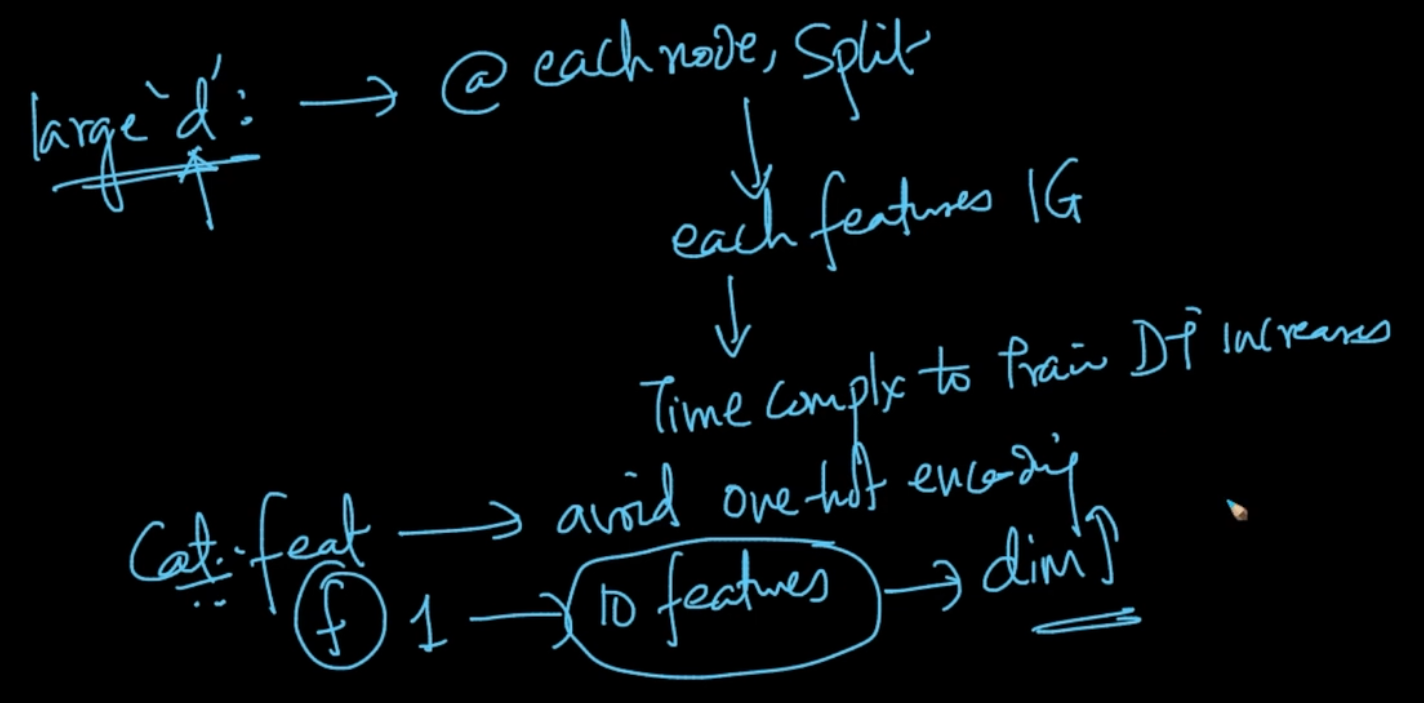 large 'd': → @ each node, Split
↓
each features IG
↓
Time complx to train DT increases
Cat. feat → avoid one-hot encoding
f 1 → 10 features → dim↑